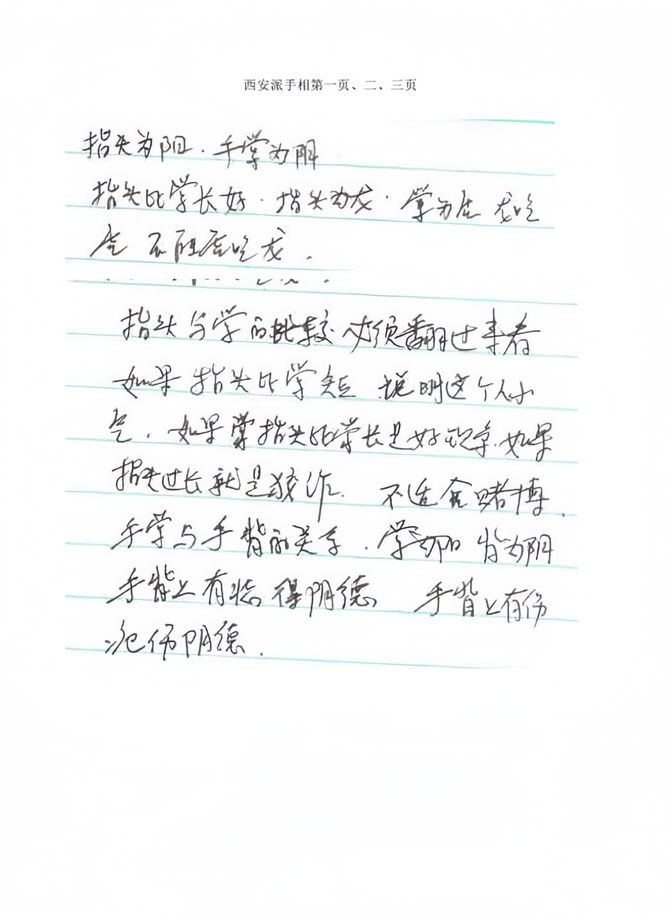 西安派手相第一页、二、三页
指头为阳．手掌为阴
指头比掌长好．指头为龙．掌为虎 龙吃
虎 不能虎吃龙．
指头与掌的比较 必须翻过来看
如果 指头比掌短 说明这个人小
气．如果掌指头比掌长是好现象．如果
指头过长就是狡诈． 不适合赌博．
手掌与手背的关系．掌为阳 背为阴
手背上有痣 得阴德 手背上有伤
疤伤阴德．